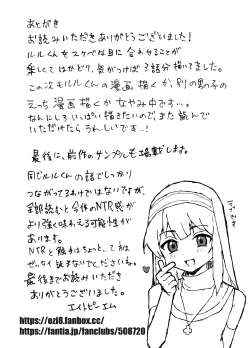 あとがき
お読みいただきありがとうございました!
ルルくんをスケベな目に合わせることが
楽しくてはかどり、気がつけば3話分描いてました。
この次もルルくんの漫画描くか、別の男の子の
えっち漫画描くかなやみ中です…。
なんにしろいっぱい描きたいので、また読んで
いただけたらうれしいです…!
最後に、前作のサンプルも掲載します。
同じルルくんの話でしっかり
つながってるわけではないですが、
全部読むと今作のNTR感が
より強く味わえる可能性が
あります。
NTRと触手はちょっと…てひとは
ぜったい読まないでくださいね。
最後までお読みいただき
ありがとうございました。
エイトピーエム
https://ozi8.fanbox.cc/
https://fantia.jp/fanclubs/508720